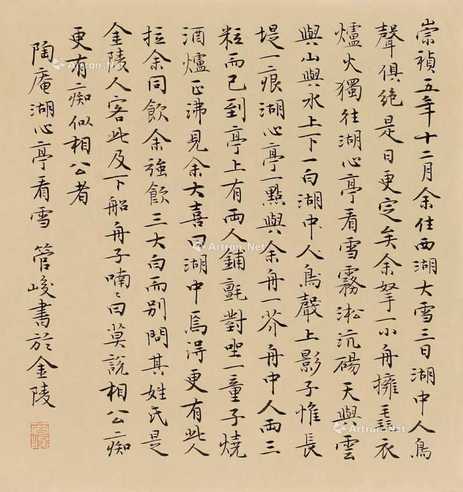 崇禎五年十二月余住西湖大雪三日湖中人鳥
聲俱絕是日更定矣余拏一小舟擁毳衣
爐火獨往湖心亭看雪霧淞沆碭天與雲
與山與水上下一白湖中人鳥聲上影子惟長
堤一痕湖心亭一點與余舟一芥舟中人兩三
粒而已到亭上有兩人鋪氈對坐一童子燒
酒爐正沸見余大喜曰湖中焉得更有此人
拉余同飲余強飲三大白而別問其姓氏是
金陵人客此及下船舟子喃〻曰莫說相公痴
更有痴似相公者
陶庵湖心亭看雪 管峻書於金陵
Artron.Net